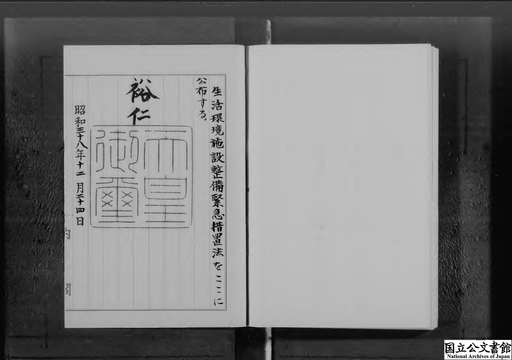 生活環境施設整備緊急措置法をここに
公布する。
裕仁
天皇
御璽
昭和三十八年十二月二十四日
国立公文書館
National Archives of Japan